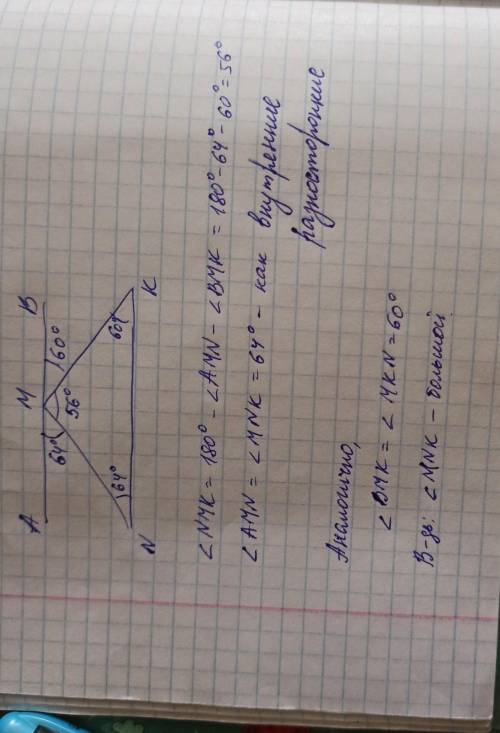 A M B
64° 60°
56°
64° 60°
N K
∠NMK = 180° - ∠AMN - ∠BMK = 180° - 64° - 60° = 56°
∠AMN = ∠MNK = 64° - как внутренние
разносторонние
Аналогично,
∠BMK = ∠MKN = 60°
В-дь: ∠MNK - большой